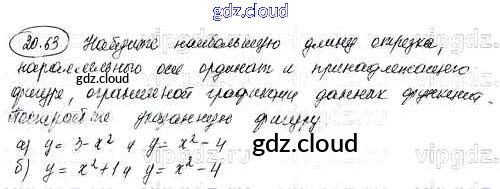 gdz.cloud
20.63 Найдите наибольшую длину отрезка,
параллельного оси ординат и принадлежащего
gdz.cloud
фигуре, ограниченной графиками данных функций.
Постройте указанную фигуру
а) y = 3-x² и y = x² - 4
gdz.cloud
б) y = x²+1 и y = x² - 4
gdz.cloud